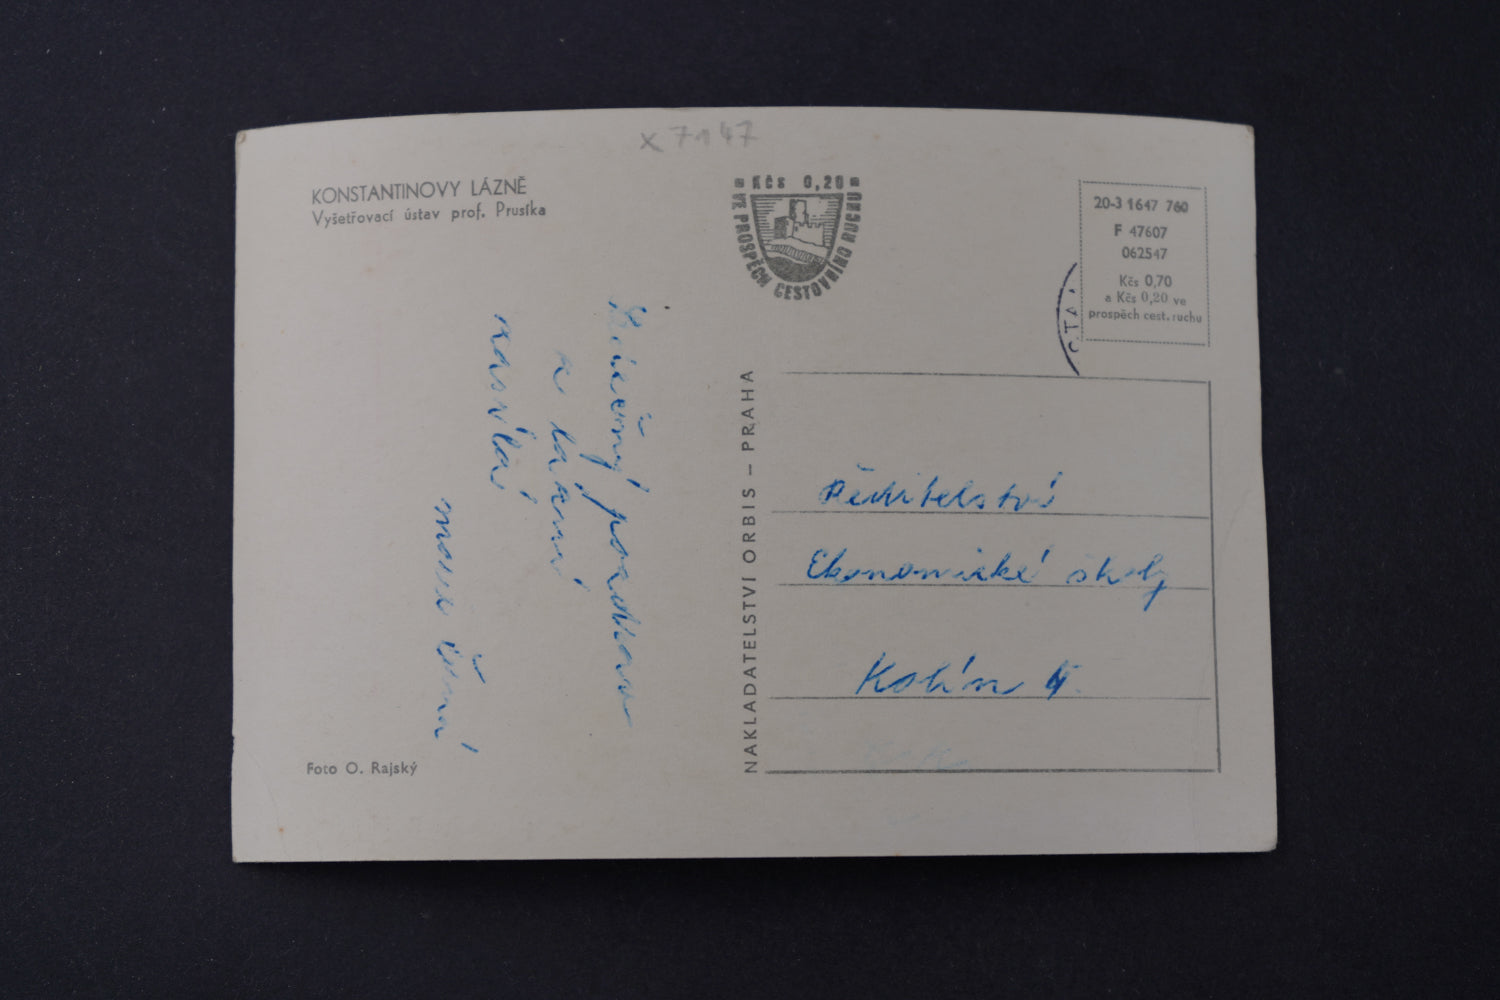 x 7147
KONSTANTINOVY LÁZNĚ
Vyšetřovací ústav prof. Prusíka
Kčs 0,20
VE PROSPĚCH CESTOVNÍHO RUCHU
20-3 1647 760
F 47607
062547
Kčs 0,70
a Kčs 0,20 ve
prospěch cest. ruchu
Srdečný pozdrav
a lázní
zasílá
Černá
NAKLADATELSTVÍ ORBIS – PRAHA
Ředitelství
Ekonomické školy
Kolín
Foto O. Rajský